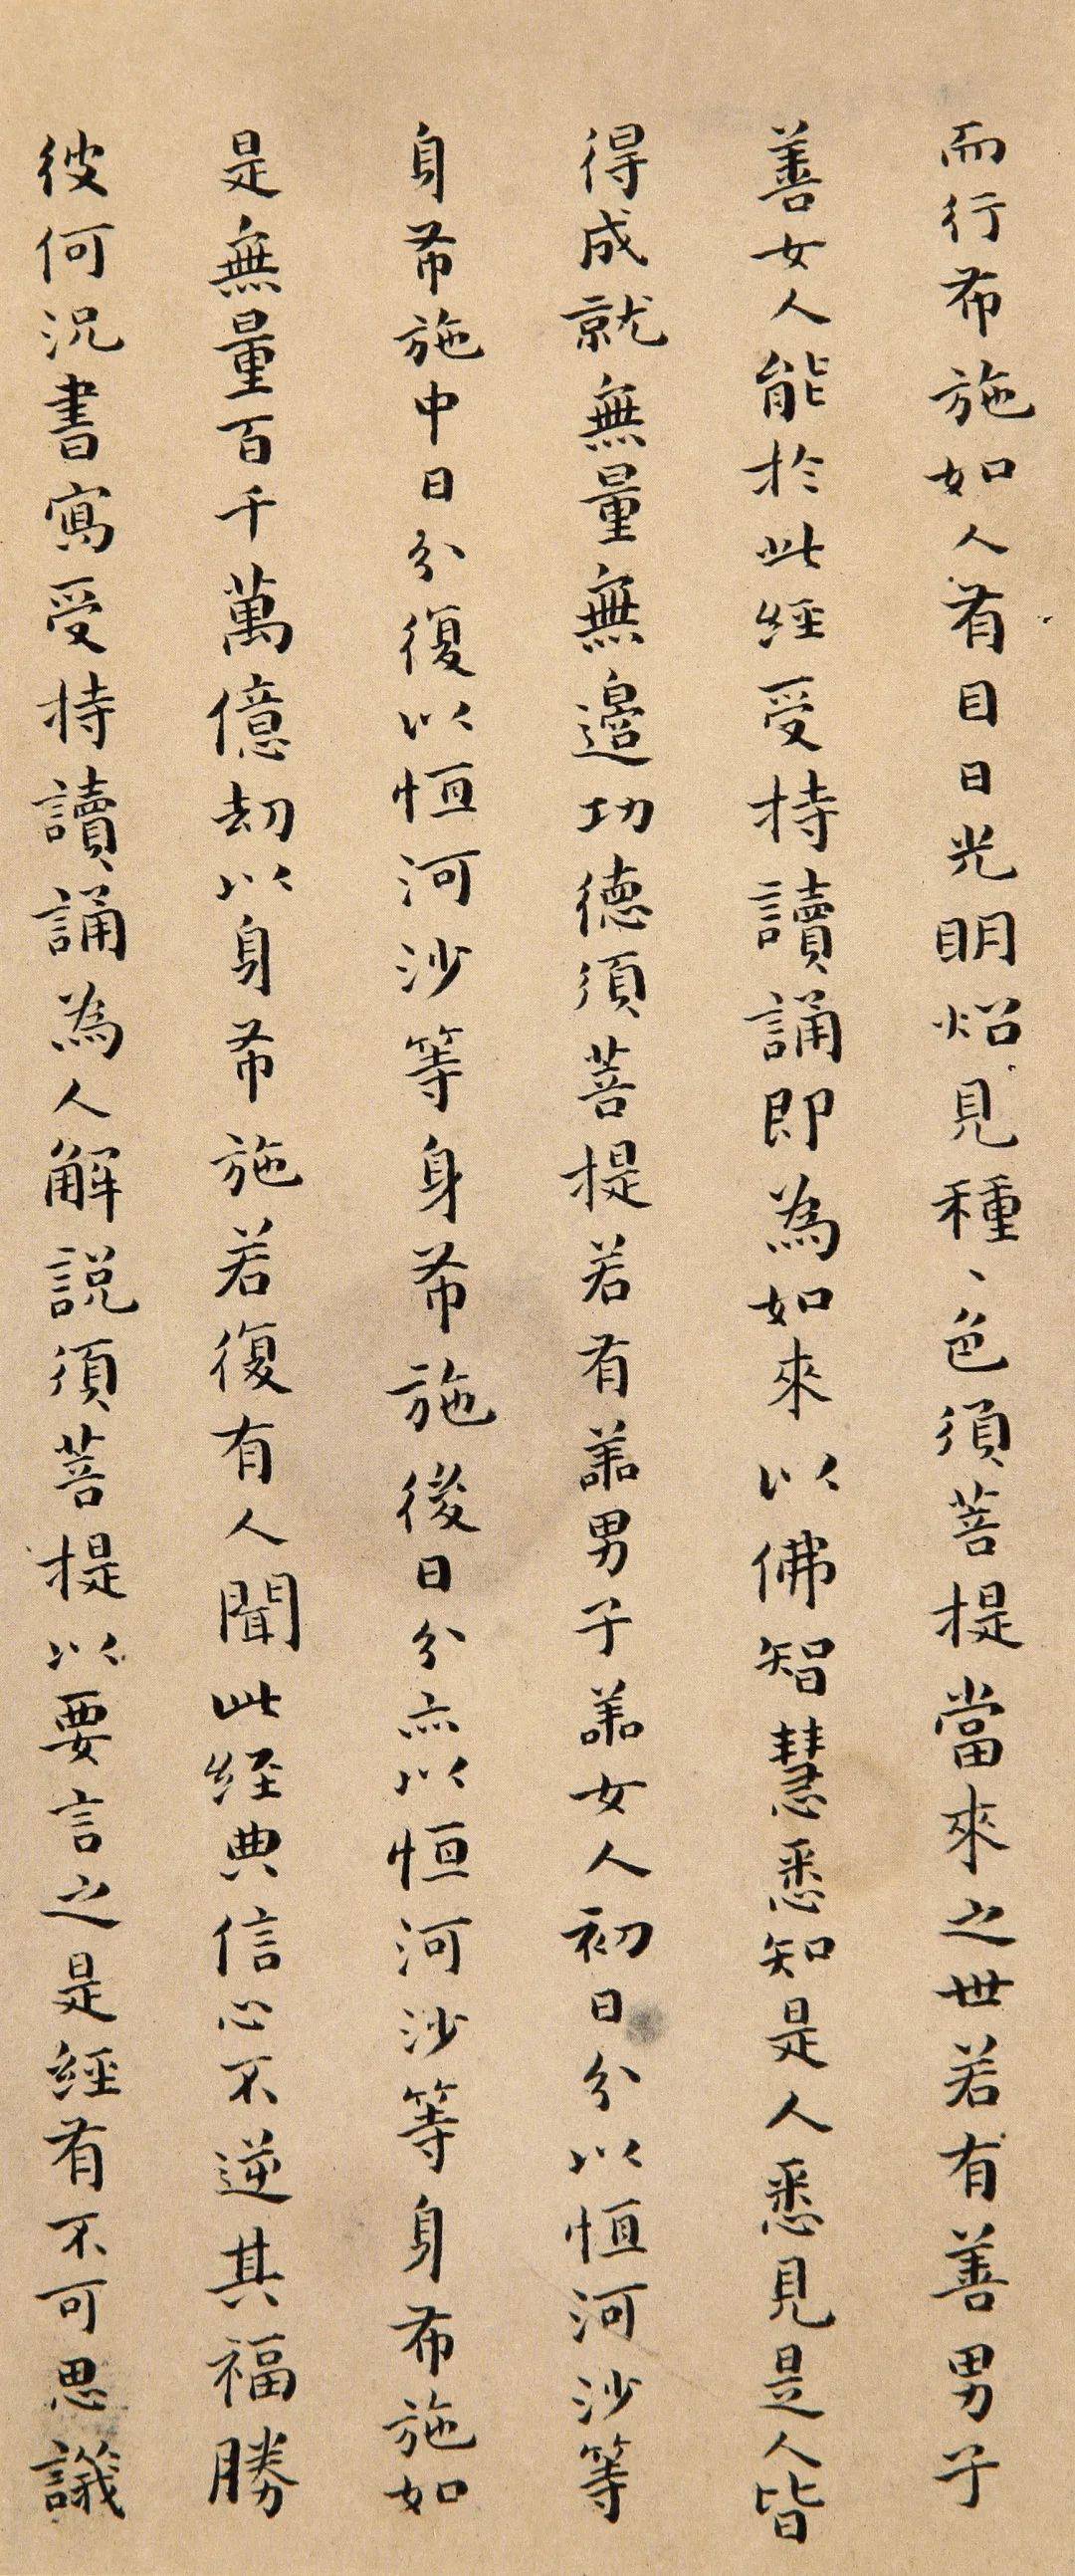 而行布施如人有目日光明炤見種、色須菩提當來之世若有善男子
善女人能於此經受持讀誦即為如來以佛智慧悉知是人悉見是人皆
得成就無量無邊功德須菩提若有善男子善女人初日分以恒河沙等
身布施中日分復以恒河沙等身布施後日分亦以恒河沙等身布施如
是無量百千萬億劫以身布施若復有人聞此経典信心不逆其福勝
彼何況書寫受持讀誦為人解說須菩提以要言之是經有不可思議